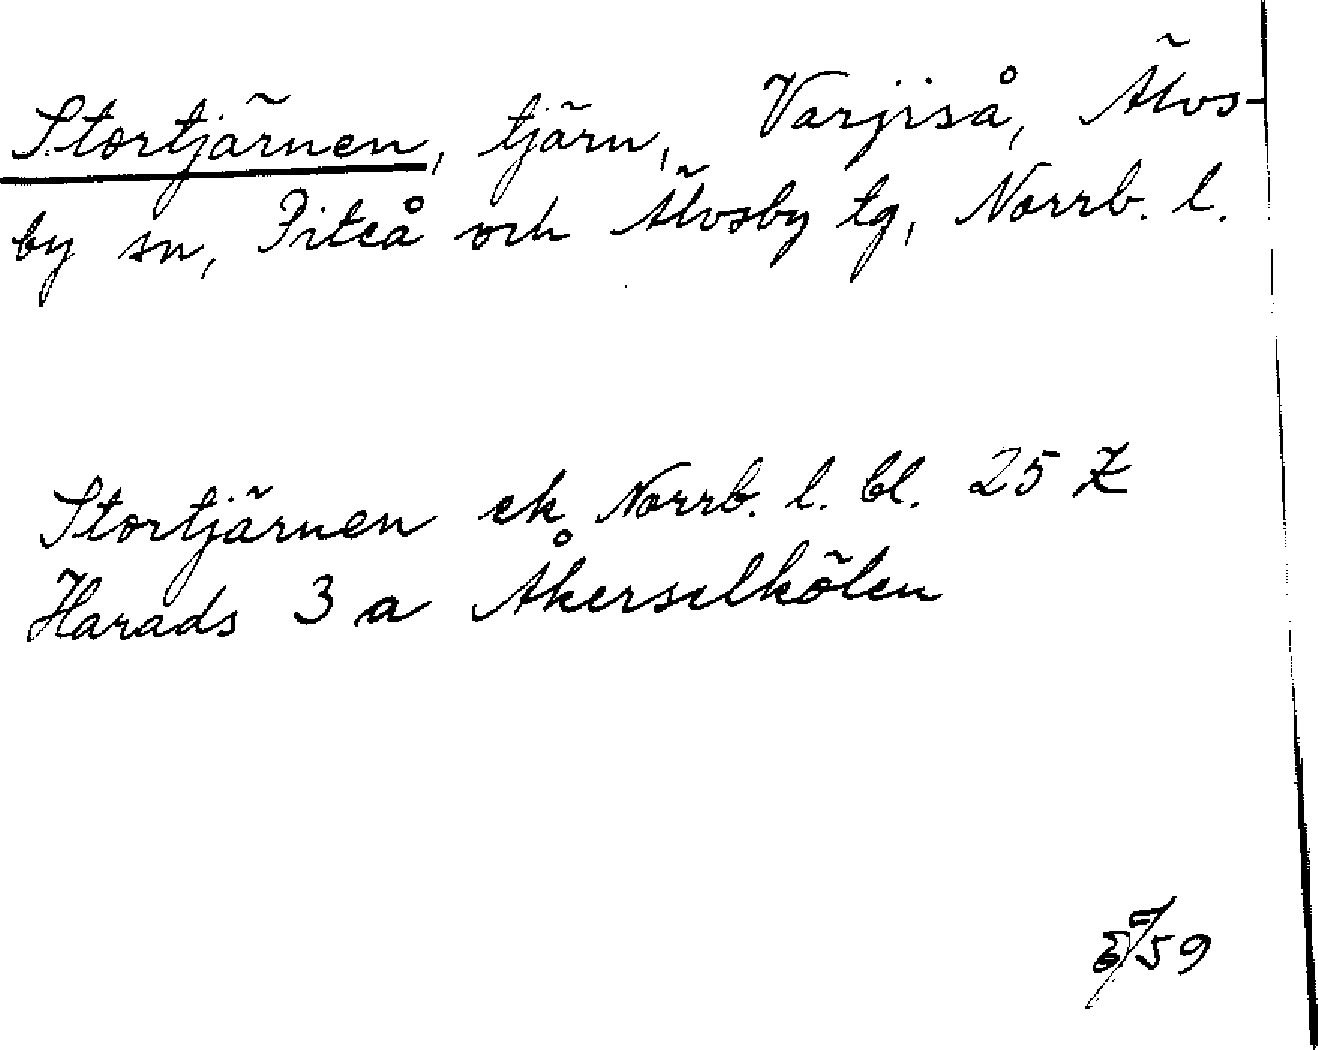 Stortjärnen, tjärn, Varjiså, Älvs-
by sn, Piteå och Älvsby tg, Norrb. l.
Stortjärnen ek Norrb. l. bl. 25 K
Harads 3 a Åkerselkölen
59